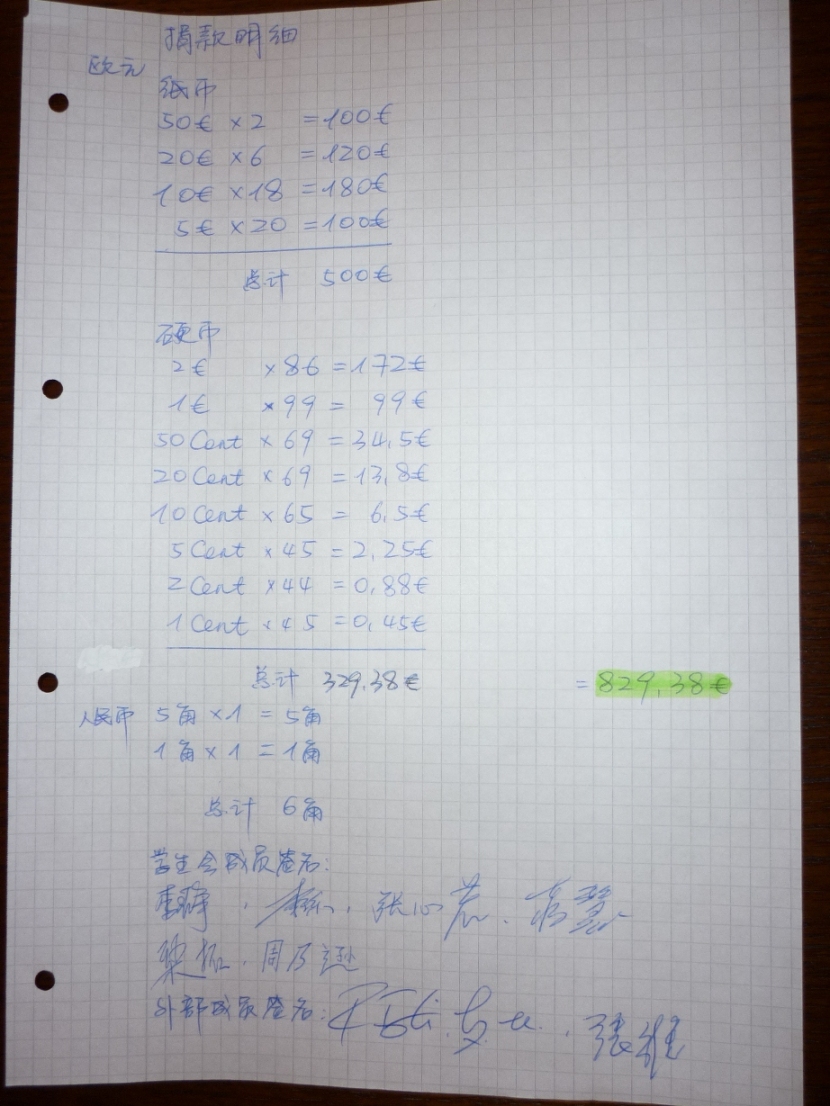 捐款明细
欧元
纸币
50€ ×2 =100€
20€ ×6 =120€
10€ ×18 =180€
5€ ×20 =100€
总计 500€
硬币
2€ ×86 =172€
1€ ×99 = 99€
50 Cent ×69 =34,5€
20 Cent ×69 =13,8€
10 Cent ×65 = 6,5€
5 Cent ×45 =2,25€
2 Cent ×44 =0,88€
1 Cent ×45 =0,45€
总计 329,38€ =829,38€
人民币 5角 ×1 =5角
1角 ×1 =1角
总计 6角
学生会成员签名:
周乃逊
外部成员签名: 张雅